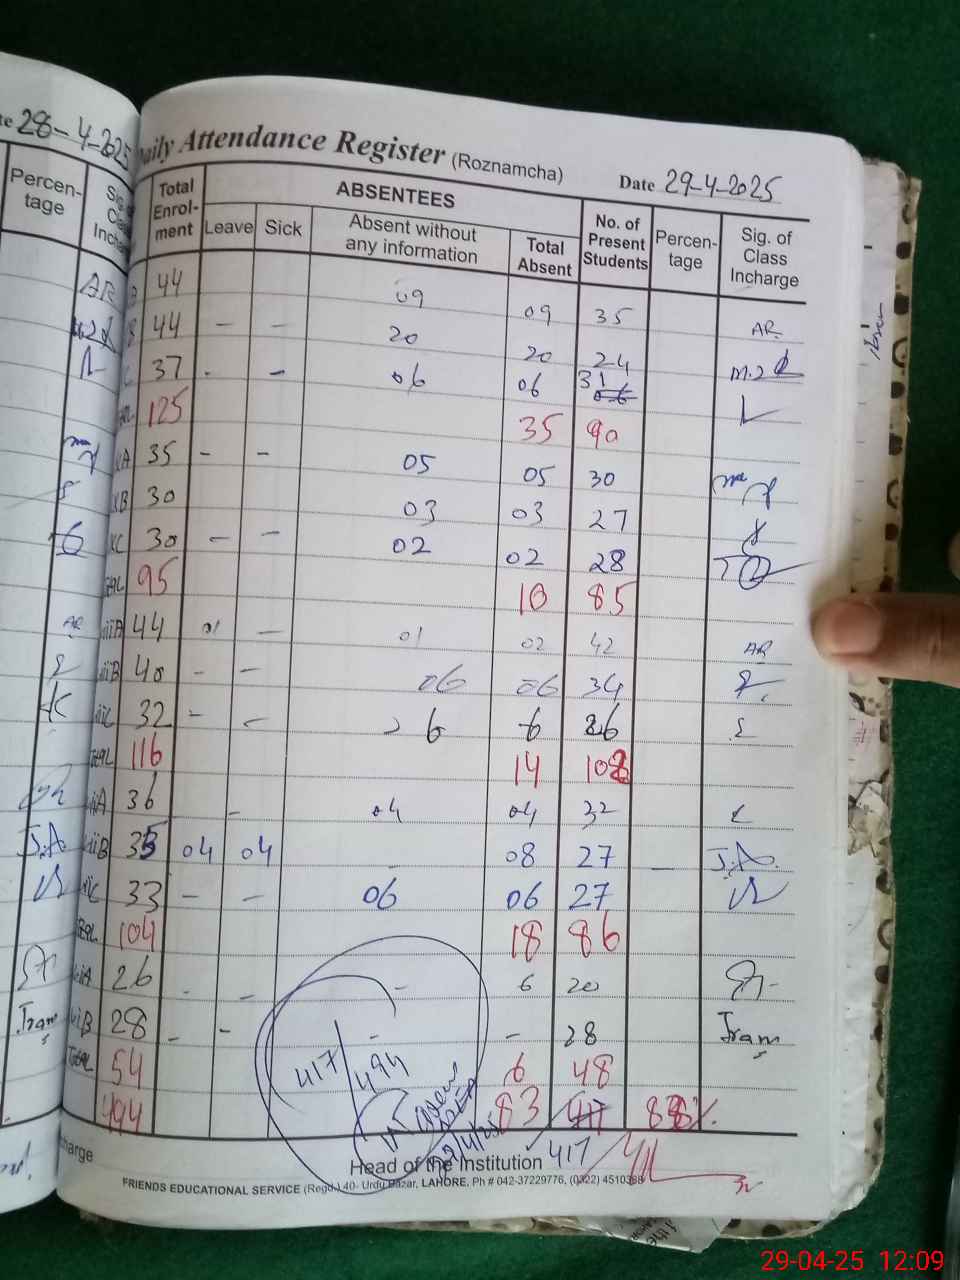 28-4-2025
Daily Attendance Register (Roznamcha)
Date 29-4-2025
Percentage
Sig. of Class Incharge
Total Enrolment
ABSENTEES
Leave Sick Absent without any information Total Absent
No. of Present Students
Percentage
Sig. of Class Incharge
44 09 09 35 AR
44 - - 20 20 24
37 - - 06 06 31
125 35 90
35 - - 05 05 30
30 03 03 27
30 - - 02 02 28
95 10 85
44 01 - 01 02 42 AR
40 - - 06 06 34
32 - - 6 6 26
116 14 102
36 - 04 04 32
35 04 04 - 08 27 - J.A
33 - - 06 06 27
104 18 86
26 - - - 6 20
28 - - - - 28
Total 54 6 48
494 83 417
417/494
Head of the Institution 417
FRIENDS EDUCATIONAL SERVICE (Regd.) 40- Urdu Bazar, LAHORE. Ph # 042-37229776, (0322) 4510388
29-04-25 12:09